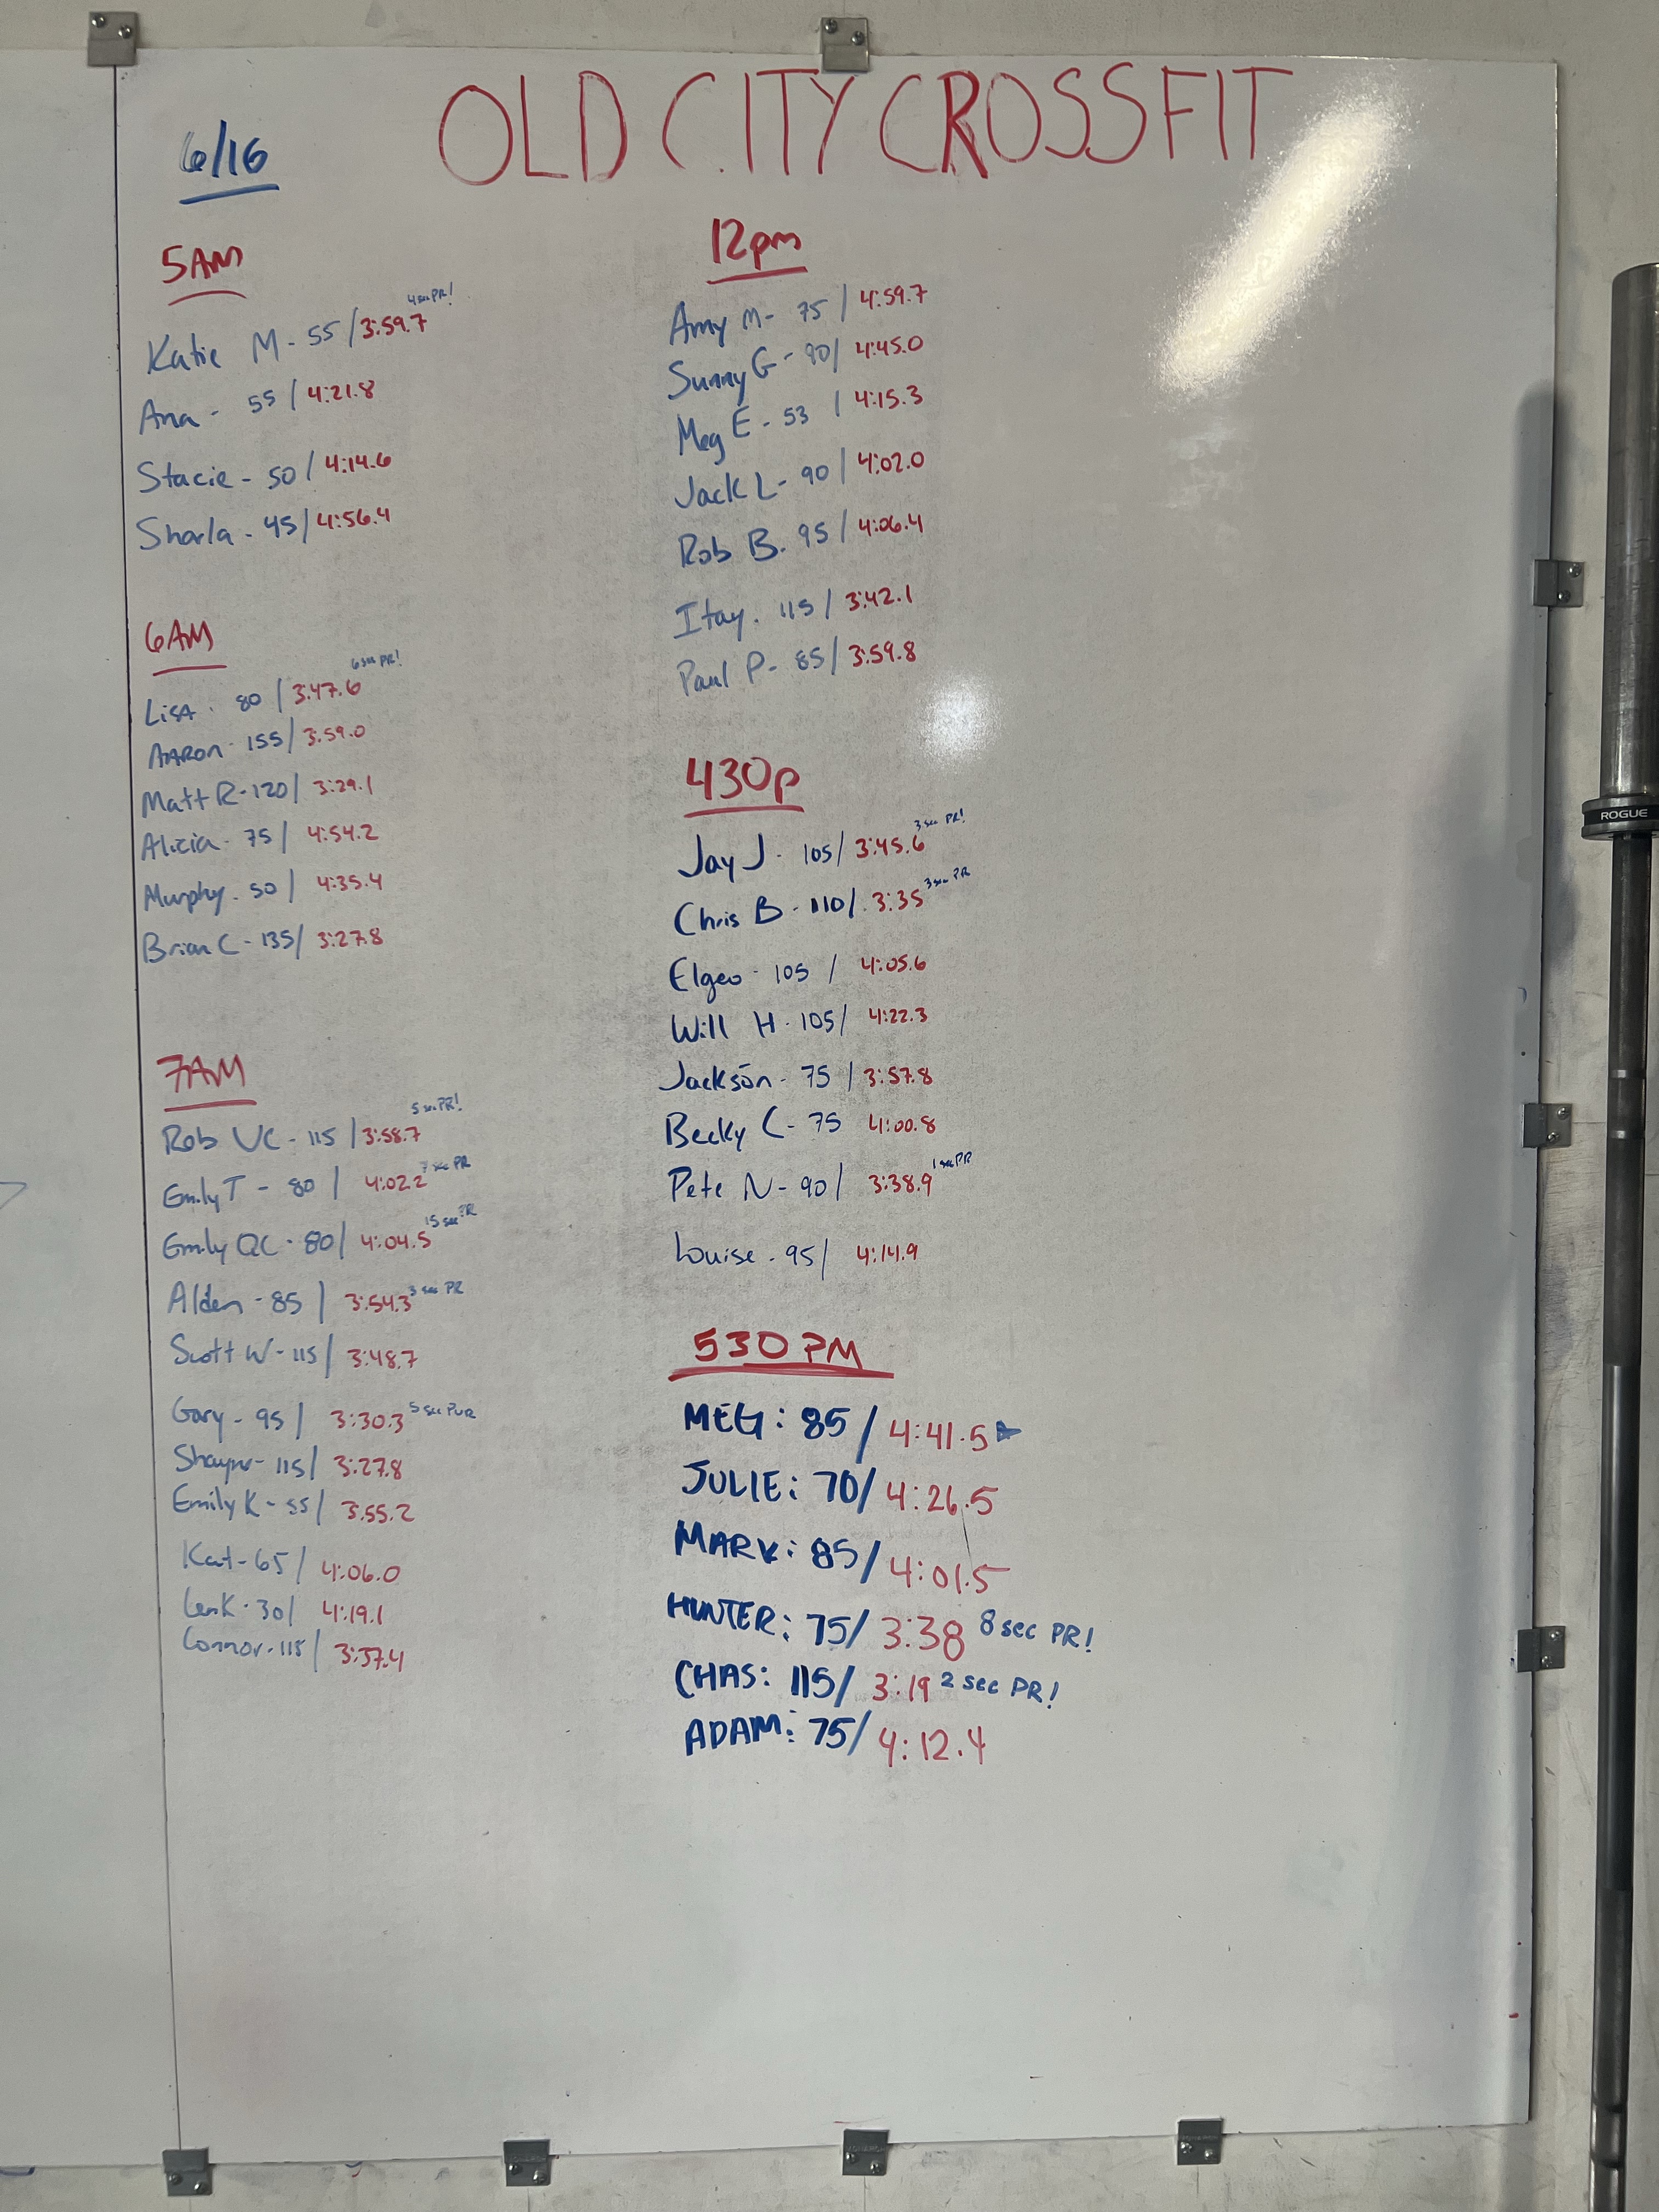 OLD CITY CROSSFIT
6/16
5AM
Katie M - 55 / 3:59.7 4 sec PR!
Ana - 55 / 4:21.8
Stacie - 50 / 4:14.6
Sharla - 45 / 4:56.4
6AM
LISA - 80 / 3:47.6 6 sec PR!
AARON - 155 / 3:59.0
Matt R - 120 / 3:29.1
Alicia - 75 / 4:54.2
Murphy - 50 / 4:35.4
Brian C - 135 / 3:27.8
7AM
Rob UC - 115 / 3:58.7 5 sec PR!
Emily T - 80 / 4:02.2 sec PR
Emily QC - 80 / 4:04.5 15 sec PR
Alden - 85 / 3:54.3 3 sec PR
Scott W - 115 / 3:48.7
Gary - 95 / 3:30.3 5 sec
Shayne - 115 / 3:27.8
Emily K - 55 / 3:55.2
Kat - 65 / 4:06.0
30 / 4:19.1
Connor - 115 / 3:37.4
12pm
Amy M - 75 / 4:59.7
Sunny G - 90 / 4:45.0
Meg E - 53 / 4:15.3
Jack L - 90 / 4:02.0
Rob B. 95 / 4:06.4
Itay. 115 / 3:42.1
Paul P - 85 / 3:59.8
430p
Jay J - 105 / 3:45.6 3 sec PR!
Chris B - 110 / 3:35 3 sec PR
Elgeo - 105 / 4:05.6
Will H - 105 / 4:22.3
Jackson - 75 / 3:57.8
Becky C - 75 4:00.8
Pete N - 90 / 3:38.9 1 sec PR
Louise - 95 / 4:14.9
530 PM
MEG: 85 / 4:41.5
JULIE: 70 / 4:26.5
MARK: 85 / 4:01.5
HUNTER: 75 / 3:38 8 sec PR!
CHAS: 115 / 3:19 2 sec PR!
ADAM: 75 / 4:12.4
ROGUE